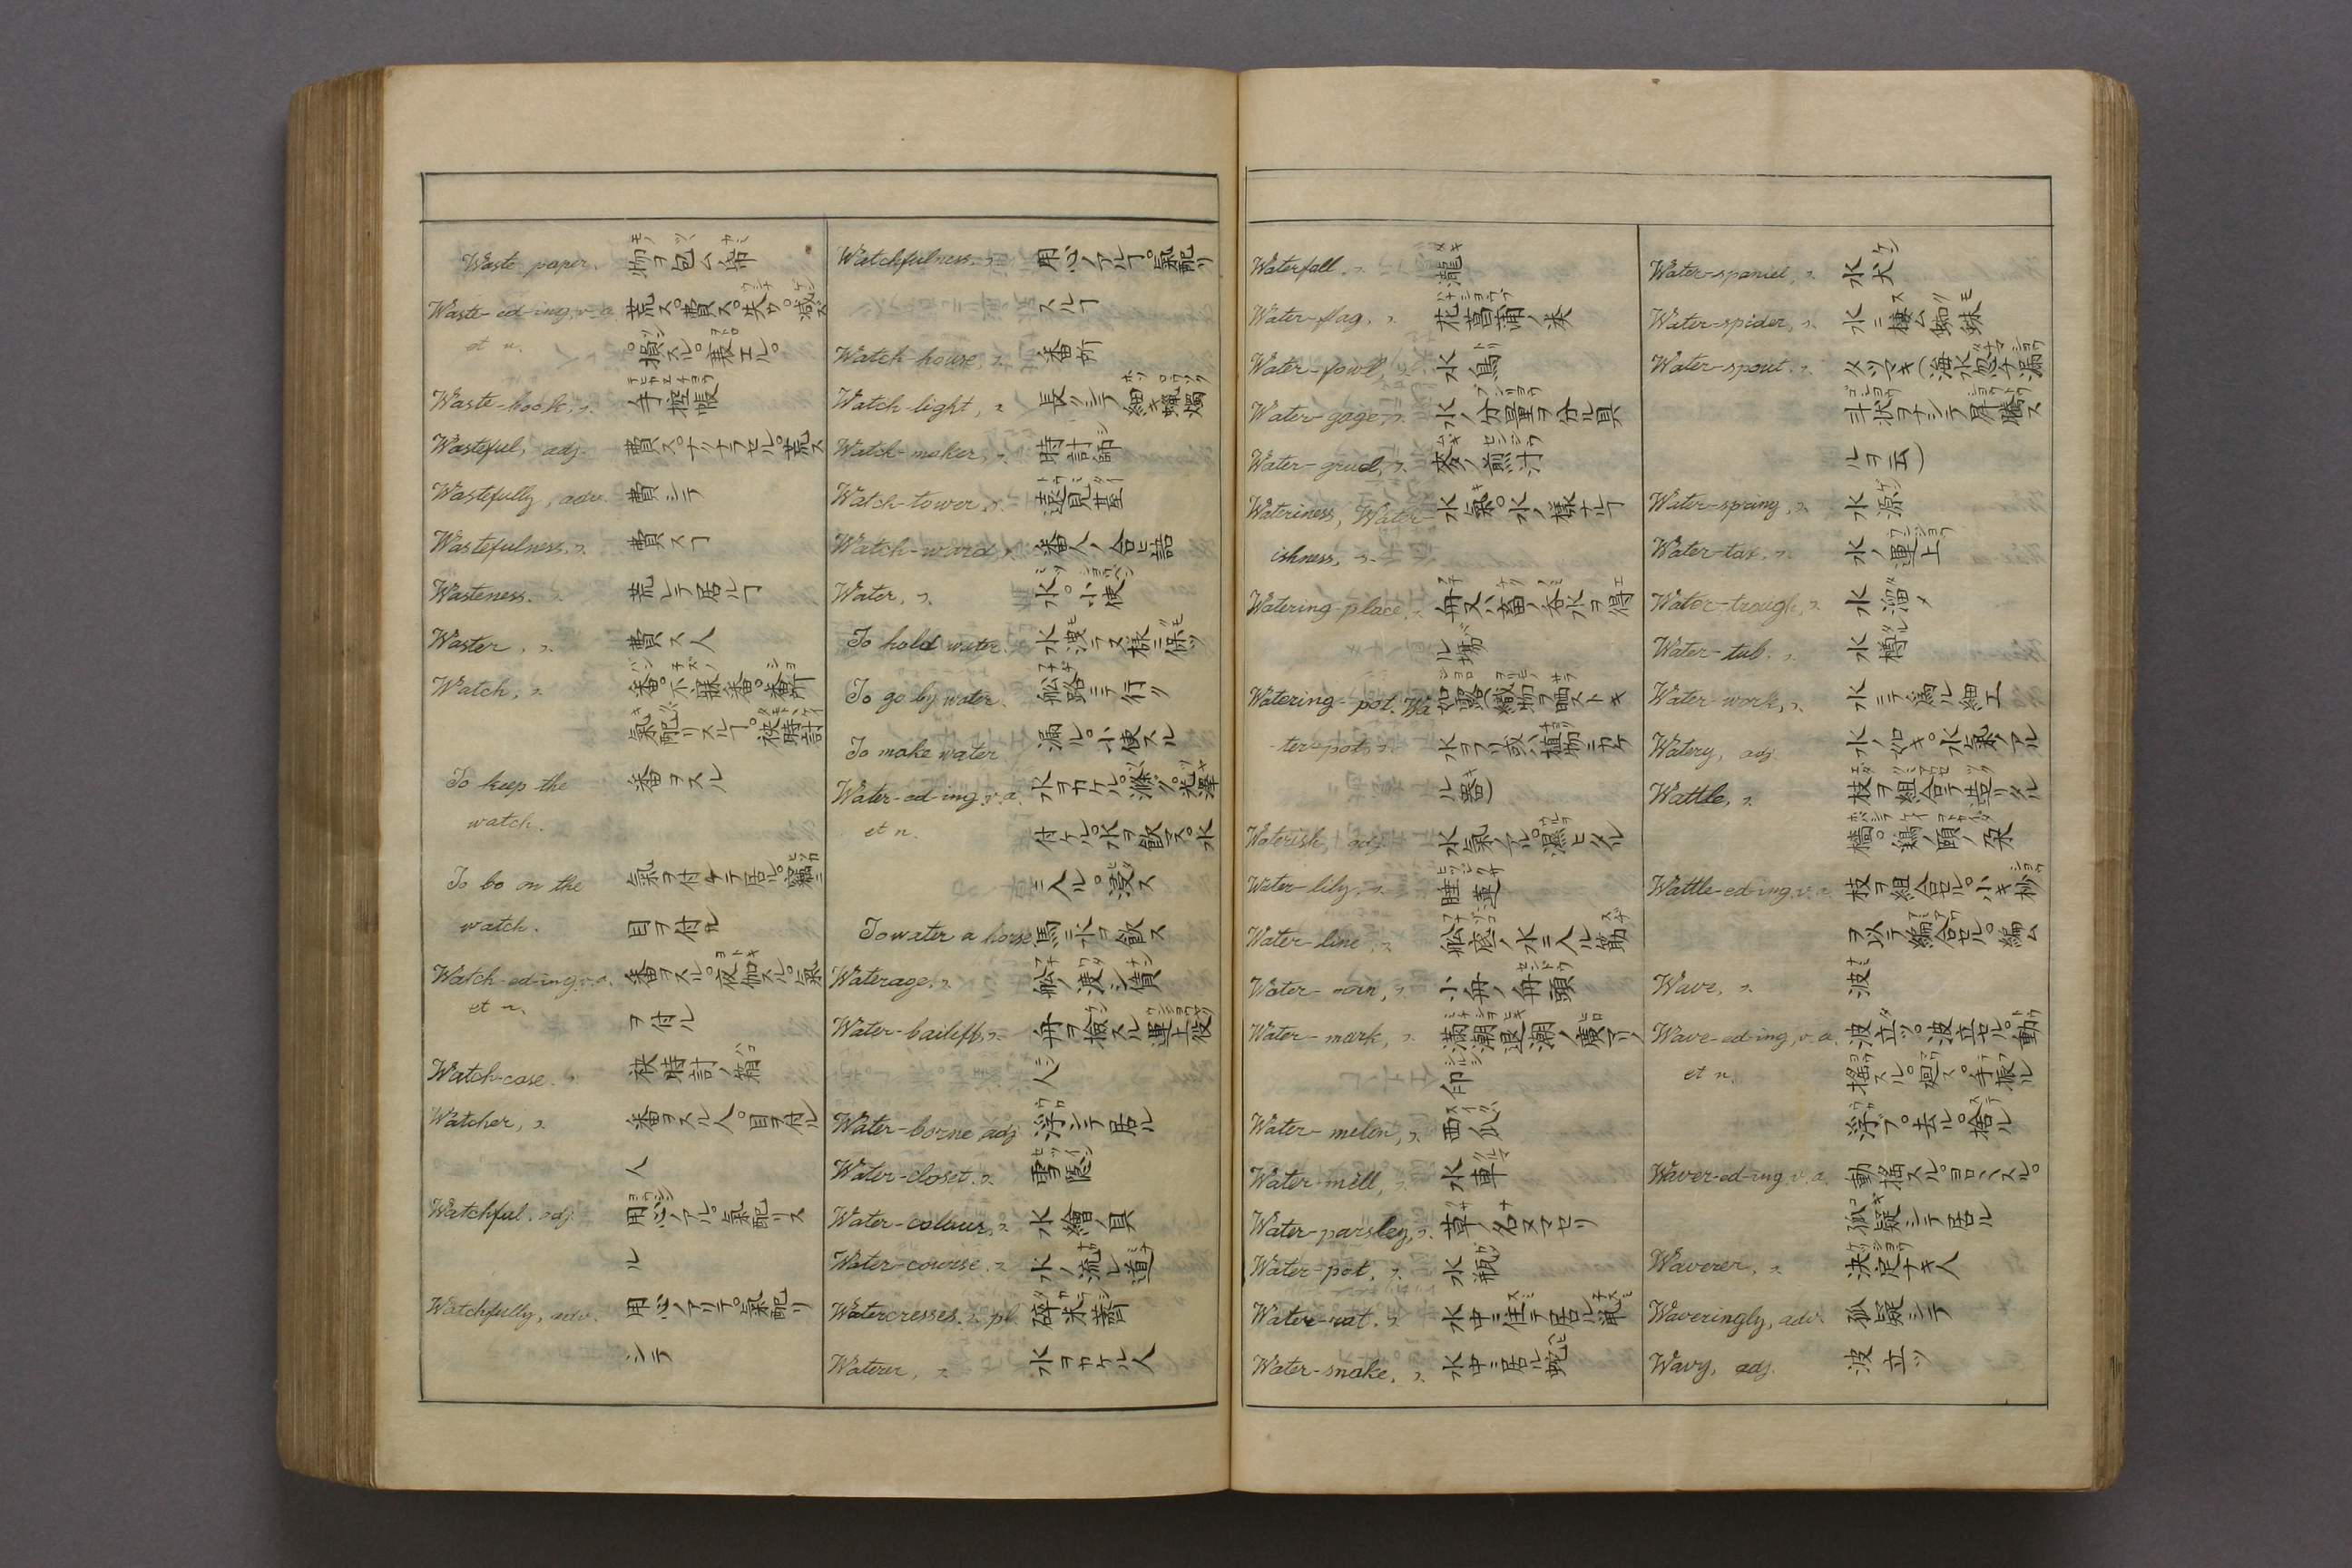 Waste paper. 物ヲ包ム紙
Waste-ed-ing, v.a. 荒ス。費ス。失フ。減ズ
et n. 。損スル。衰エル。
Waste-book, n. 手控帳
Wasteful, adj. 費スナリナラセル。荒ス
Wastefully, adv. 費シテ
Wastefulness, n. 費スヿ
Wasteness. n. 荒レテ居ルヿ
Waster, n. 費ス人
Watch, n. 番。不寐番。番所
氣配リスルヿ。袂時計
To keep the 番ヲスル
watch.
To be on the 氣ヲ付ケテ居ル。竊ニ
watch. 目ヲ付ル
Watch-ed-ing, v.a. 番ヲスル。夜伽スル。氣
et n. ヲ付ル
Watch-case. n. 袂時計ノ箱
Watcher, n. 番ヲスル人。目ヲ付ル
人
Watchful. adj. 用心ノアル。氣配リス
ル
Watchfully, adv. 用心ノアリテ。氣配リ
シテ
Watchfulness, n. 用心ノアルヿ。氣配リ
スルヿ
Watch-house, n. 番所
Watch-light, n. 長クシテ細キ蠟燭
Watch-maker, n. 時計師
Watch-tower, n. 遠見臺
Watch-word, n. 番人ノ合ヒ詞
Water, n. 水。小便
To hold water. 水洩ラヌ樣ニ保ツ
To go by water. 舩路ニテ行ク
To make water 漏ル。小便スル
Water-ed-ing, v.a. 水ヲカケル。滌グ。光澤
et n. 付ケル。水ヲ飲マス。水
ニ入ル。浸ス
To water a horse 馬ニ水ヲ飲ス
Waterage. n. 舩ノ渡シ賃
Water-bailiff, n. 舟ヲ檢スル運上役
人
Water-borne adj 浮シテ居ル
Water-closet. n. 雪隠
Water-colours, n. 水繪ノ具
Water-course. n. 水ノ流レ道
Watercresses. n. pl. 碎米薺
Waterer, n. 水ヲカケル人
Waterfall. n. 瀧
Water-flag, n. 花菖蒲ノ類
Water-fowl, n. 水鳥
Water-gage, n. 水ノ分量ヲ分ル具
Water-gruel, n. 麥ノ煎汁
Wateriness, Water- 水氣。水ノ樣ナルヿ
ishness, n.
Watering-place, n. 舟又ハ畜ノ呑水ヲ得
ル塲
Watering-pot. Wa 如露(織物ヲ晒ストキ
-ter-pot, n. 水ヲフリ或ハ植物ニカケ
ル器)
Waterish, adj. 水氣ノアル。濕ヒタル
Water-lily, n. 睡蓮
Water-line, n. 舩底ノ水ニ入ル筋
Water-man, n. 小舟ノ舟頭
Water-mark, n. 滿潮退潮ノ廣マリノ
印
Water-melon, n. 西瓜
Water-mill, n. 水車
Water-parsley, n. 草ノ名ヌマセリ
Water-pot, n. 水瓶
Water-rat. n. 水中ニ住テ居ル鼡
Water-snake, n. 水中ニ居ル蛇
Water-spaniel, n. 水犬
Water-spider, n. 水ニ棲ム蜘蛛
Water-spout. n. タツマキ(海水忽チ漏
斗状ヲナシテ昇騰ス
ルヲ云)
Water-spring, n. 水源
Water-tax, n. 水ノ運上
Water-trough, n. 水溜メ
Water-tub. n. 水樽
Water-work, n. 水ニテ為ル細工
Watery, adj. 水ノ如キ。水氣ノアル
Wattle, n. 枝ヲ組合テ造リタル
檣。鶏ノ頤ノ朶
Wattle-ed-ing, v.a. 枝ヲ組合セル。小キ杪
ヲ以テ編合セル。編ム
Wave, n. 波
Wave-ed-ing, v.a. 波立ツ。波立セル。動
et n. 搖スル。廻ス。手ヲ振ル
浮ブ。去ル。捨ル
Waver-ed-ing, v.a. 動搖スル。ヨロヽスル。
狐疑シテ居ル
Waverer, n. 決定ナキ人
Waveringly, adv. 狐疑シテ
Wavy, adj. 波立ツ